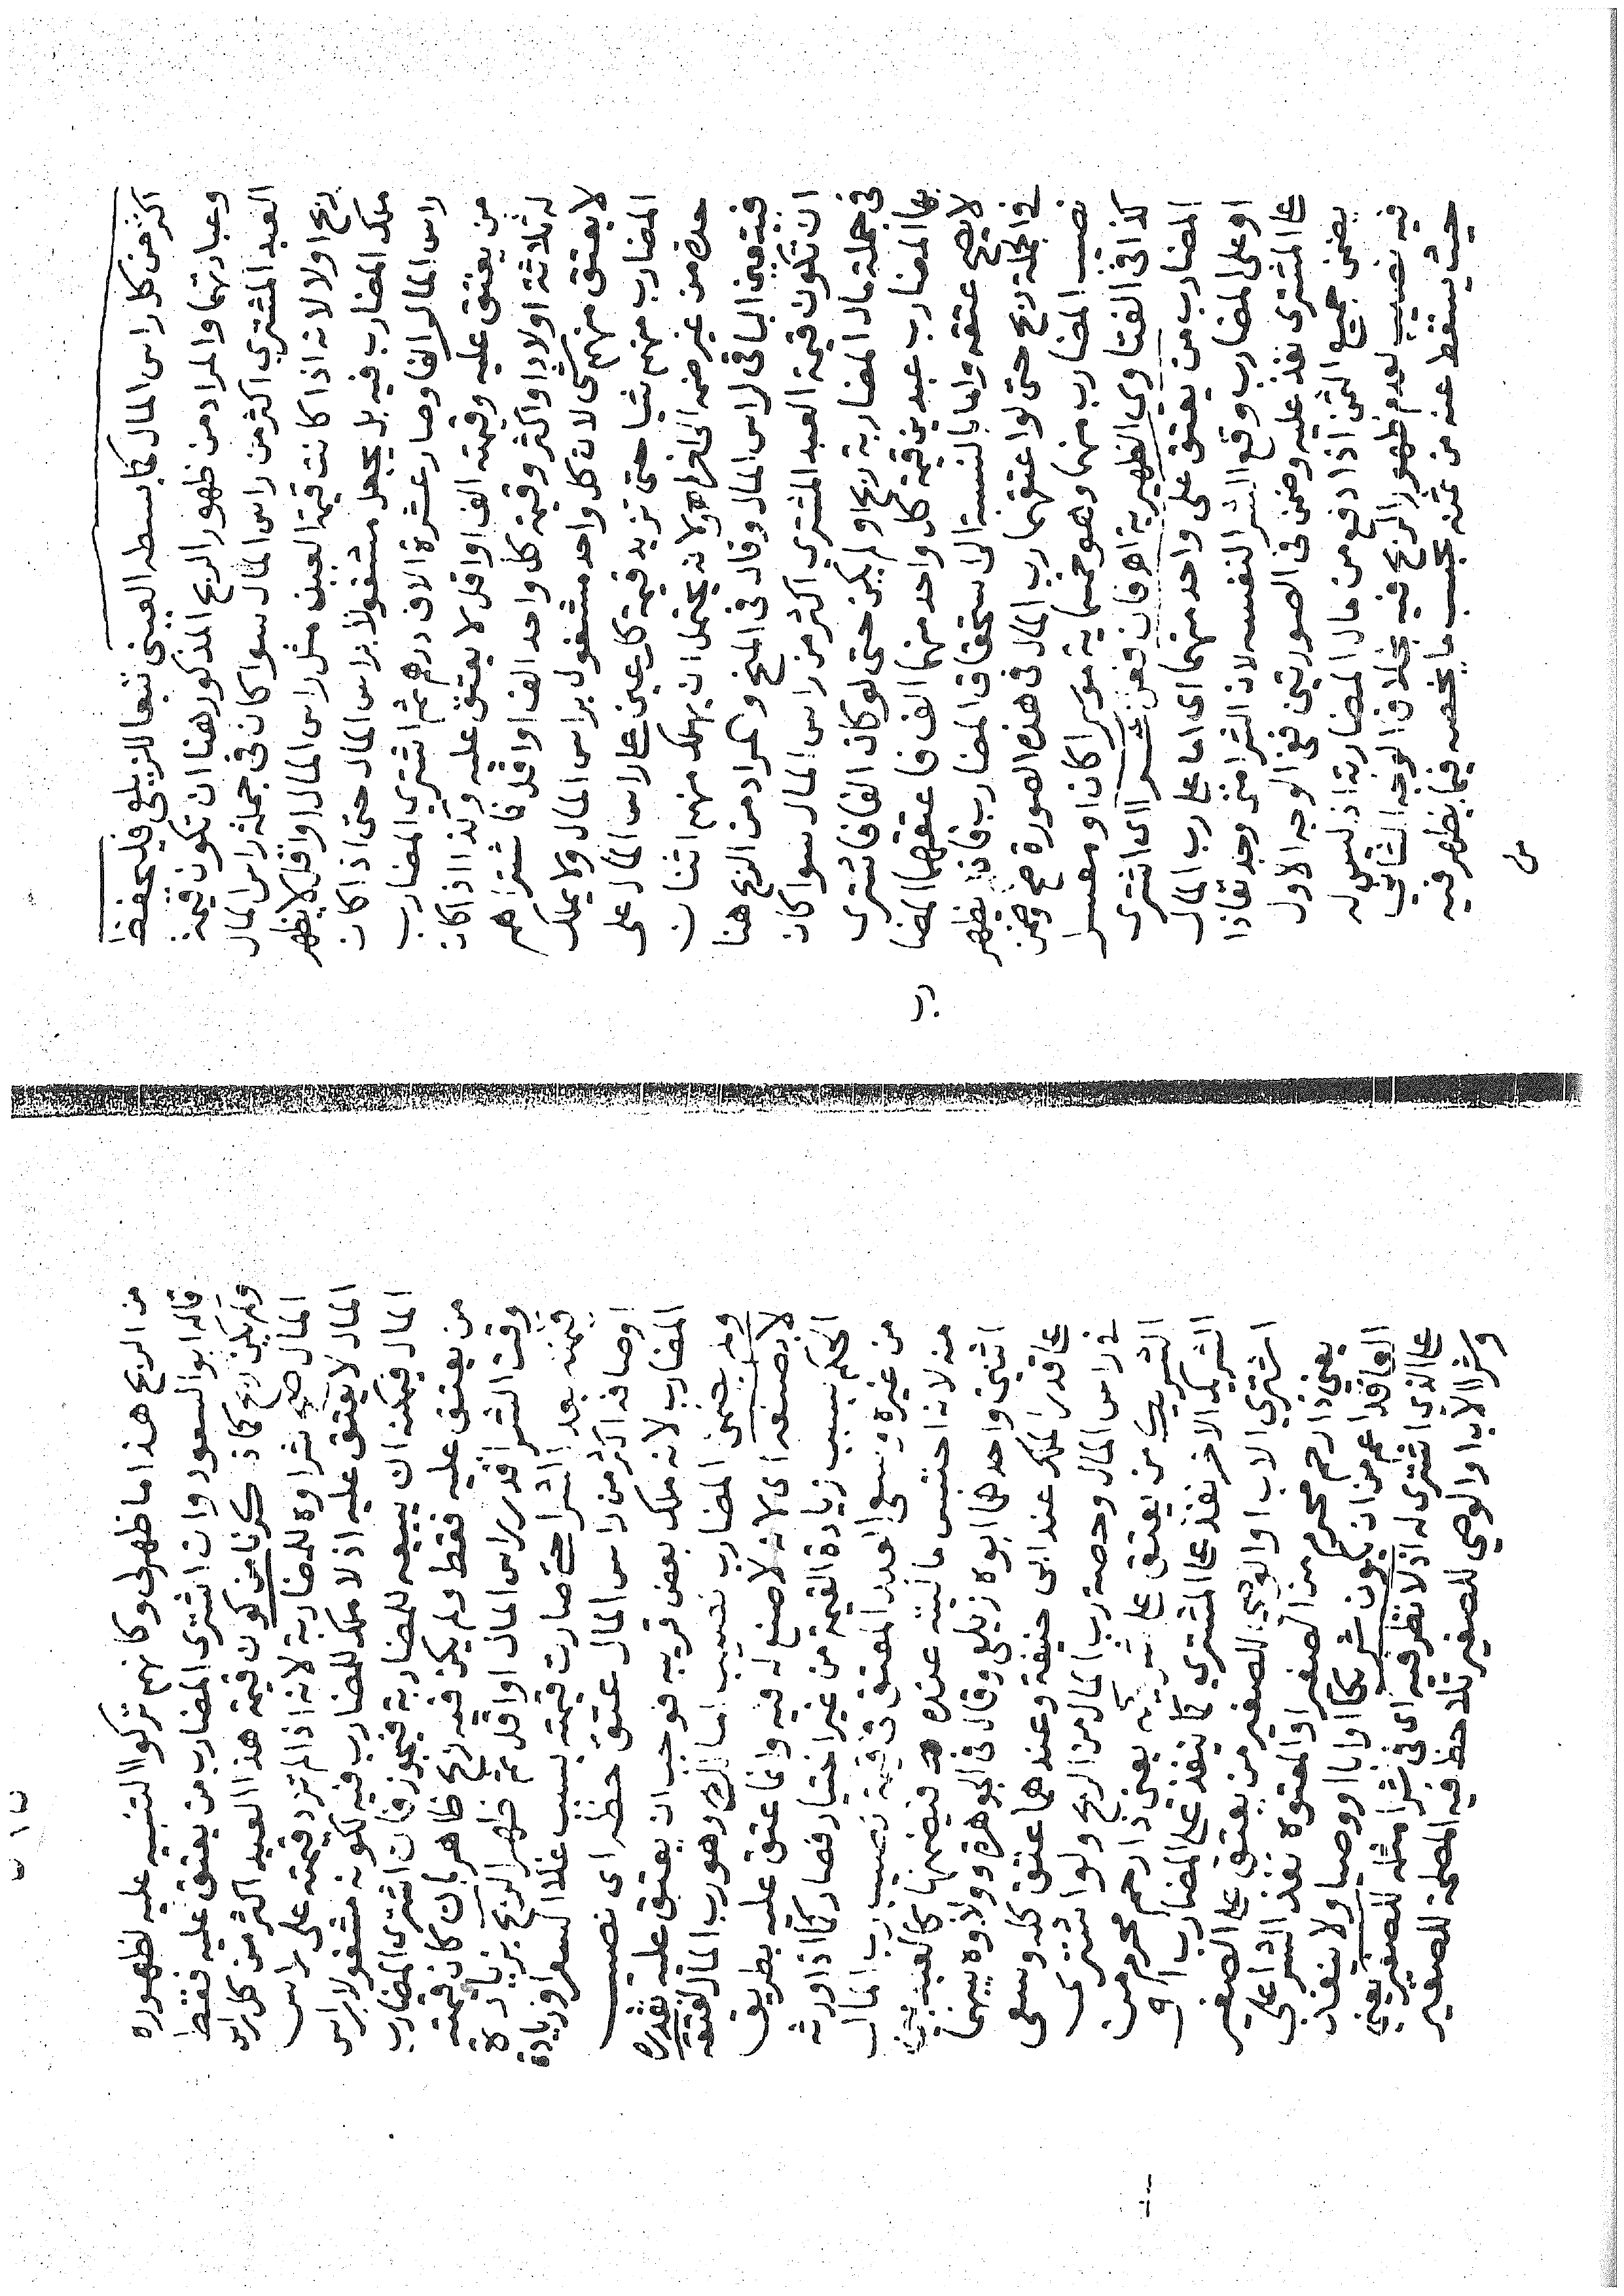 اكثر من كل راس المال كما بسطه العينى تبعا للزيلعى فليحفظ
وعبارتهما والمراد من ظهور الربح المذكور هنا ان تكون قيمة
العبد المشتري اكثر من راس المال سوا كان فى جملة راس المال
ربح اولا لانه اذا كانت قيمة العبد مثل راس المال او اقل لا يظهر
ملك المضارب فيه بل يجعل مشغولا براس المال حتى اذا كان
راس المال الفا وصار عشرة الاف درهم ثم اشتري المضارب
من يعتق عليه وقيمته الف او اقل لا يعتق عليه وكذا اذا كان
له ثلاثة اولاد او اكثر وقيمة كل واحد الف او اقل فاشتراهم
لا يعتق منهم شى لان كل واحد مشغول براس المال ولا يملك
المضارب منهم شيا حتى تزيد قيمة كل عين على راس المال على
حدة من غير ضمه الى اخر ولانه يحتمل ان يهلك منهم اثنان
فيتعين الباقى لراس المال وقال فى المنح والمراد من الربح هنا
ان تكون قيمة العبد المشتري اكثر من راس المال سوا كان
فى جملة مال المضاربة ربح او لم يكن حتى لو كان الفا فاشترى
بها المضارب عبدين قيمة كل واحد منهما الف فاعتقهما المضا
رب
لا يصح عتقه واما بالنسبة الى استحقاق المضارب فانه يظهر
فى الجملة ربح حتى لو اعتقهما رب المال فى هذه الصورة صح وضمن
نصيب المضارب منهما وهو خمسماية موسرا كان او معسرا
كذا فى الفتاوى الظهيرية اه فان فعل شرا اى اشترى
المضارب من يعتق على واحد منهما اى اما على رب المال
او على المضارب وقع الشرا لنفسه لان الشرا متى وجد نفاذا
على المشترى نفذ عليه وضمن فى الصورتين ففى الوجه الاول
يضمن جميع الثمن اذا دفع من مال المضاربة اذ ليس له
فيه نصيب لعدم ظهور الربح فيه بخلاف الوجه الثانى
حيث يسقط عنه من ثمنه بحسب ما يخصه فيما يظهر فيه
من
من الربح هذا ما ظهر لى وكانهم تركوا التنبيه عليه لظهوره
قاله ابو السعود وان اشترى المضارب من يعتق عليه فقط
ولم يكن ربح كما ذكرنا من كون قيمة هذا العبد اكثر من كل راس
المال صح شراوه للمضاربة لانه اذا لم تزد قيمته على راس
المال لا يعتق عليه اذ لا ملك للمضارب فيه لكونه مشغولا براس
المال فيمكنه ان يبيعه للمضاربة فيجوز فان اشترى المضارب
من يعتق عليه فقط ولم يكن فيه ربح ظاهر بان كان قيمته
وقت الشرا قدر راس المال او اقل ثم ظهر الربح بزيادة
قيمته بعد الشرا حتى صارت قيمته بسبب غلا السعر او زيادة
اوصافه اكثر من راس المال عتق حظه اى نصيب
المضارب لانه ملك بعض قريبه فوجب ان يعتق عليه بقدره
ولم يضمن المضارب نصيب المالك وهو رب المال لعتقه
لا بصنعه اى لانه لا صنع له فيه وانما عتق عليه بطريق
الحكم بسبب زيادة القيمة من غير اختيار فصار كما اذا ورثه
من غيره وسعى العبد المعتق فى قيمة نصيب رب المال
منه لانه احتبس ماليته عنده فيضمنها كالعبد بين
اثنين واحدهما ابوه زيلعى وقال فى الجوهرة وولاوه بينهما
على قدر الملك عند ابى حنيفة وعندهما عتق كله وسعى
فى راس المال وحصة رب المال من الربح ولو اشترى
الشريك من يعتق على شريكه يعنى ذا رحم محرم من
الشريك الاخر نفذ على المشتري كما ينفذ على المضارب او
اشتري الاب او الوصى للصغير من يعتق على الصغير
يعنى ذا رحم محرم من الصغير او المعتوه نفذ الشرا على
العاقد اعم من ان يكون شريكا او ابا او وصيا ولا نفاذ
على الذى اشترى له اذ لا نظر فيه اى فى شرا مثله للصغير يعنى
وشرا الاب او الوصي للصغير تلاحظ فيه المصلحة للصغير